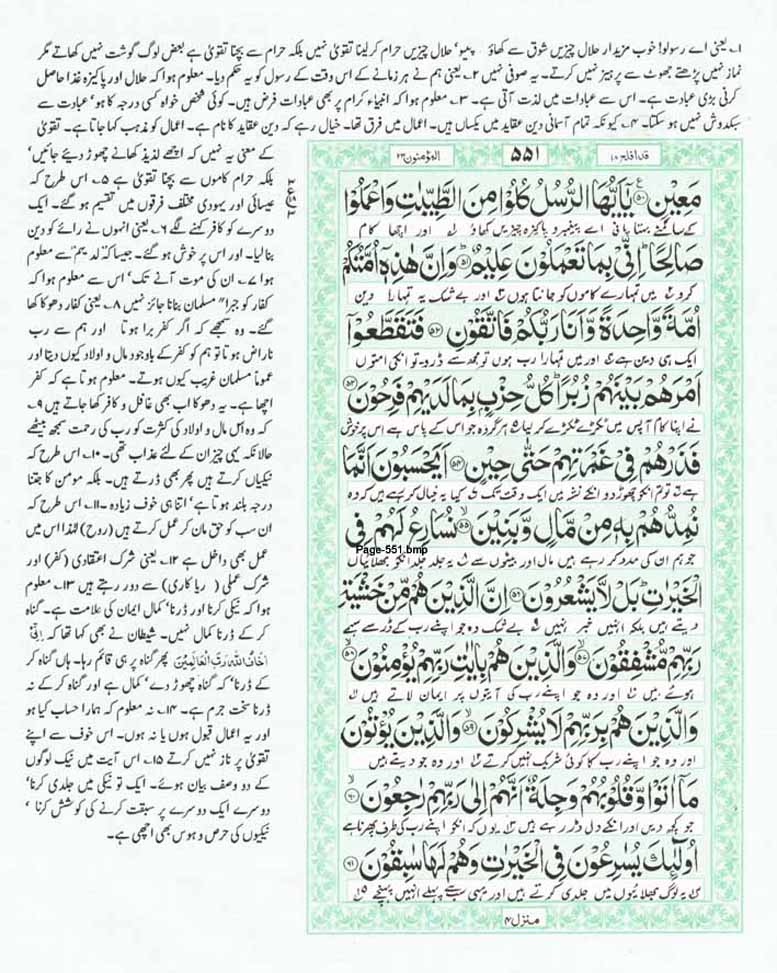 ۱۔ یعنی اے رسولو! خوب مزیدار حلال چیزیں شوق سے کھاؤ پیو' حلال چیزیں حرام کر لینا تقویٰ نہیں بلکہ حرام سے بچنا تقویٰ ہے بعض لوگ گوشت نہیں کھاتے مگر
نماز نہیں پڑھتے جھوٹ سے پرہیز نہیں کرتے۔ یہ صوفی نہیں ۲۔ یعنی ہم نے ہر زمانے کے اس وقت کے رسول کو یہ حکم دیا۔ معلوم ہوا کہ حلال اور پاکیزہ غذا حاصل
کرنی بڑی عبادت ہے۔ اس سے عبادات میں لذت آتی ہے۔ ۳۔ معلوم ہوا کہ انبیاء کرام پر بھی عبادات فرض ہیں۔ کوئی شخص خواہ کسی درجہ کا ہو' عبادت سے
سبکدوش نہیں ہو سکتا۔ ۴۔ کیونکہ تمام آسمانی دین عقاید میں یکساں ہیں۔ اعمال میں فرق تھا۔ خیال رہے کہ دین عقاید کا نام ہے۔ اعمال کو مذہب کہا جاتا ہے۔ تقویٰ
کے معنی یہ نہیں کہ اچھے لذیذ کھانے چھوڑ دیئے جائیں'
بلکہ حرام کاموں سے بچنا تقویٰ ہے ۵۔ اس طرح کہ
عیسائی اور یہودی مختلف فرقوں میں تقسیم ہو گئے۔ ایک
دوسرے کو کافر کہنے لگے ۶۔ یعنی انہوں نے رائے کو دین
بنا لیا۔ اور اس پر خوش ہو گئے۔ جیسا کہ لدیھم سے معلوم
ہوا ۷۔ ان کی موت آنے تک' اس سے معلوم ہوا کہ
کفار کو جبراً مسلمان بنانا جائز نہیں ۸۔ یعنی کفار دھوکا کھا
گئے۔ وہ سمجھے کہ اگر کفر برا ہوتا اور ہم سے رب
ناراض ہوتا تو ہم کو کفر کے باوجود مال و اولاد کیوں دیتا اور
عموماً مسلمان غریب کیوں ہوتے۔ معلوم ہوتا ہے کہ کفر
اچھا ہے۔ یہ دھوکا اب بھی غافل و کافر کھا جاتے ہیں ۹۔
کہ وہ اس مال و اولاد کی کثرت کو رب کی رحمت سمجھ بیٹھے
حالانکہ یہی چیز ان کے لئے عذاب تھی۔ ۱۰۔ اس طرح کہ
نیکیاں کرتے ہیں پھر بھی ڈرتے ہیں۔ بلکہ مومن کا جتنا
درجہ بلند ہوتا ہے' اتنا ہی خوف زیادہ۔ ۱۱۔ اس طرح کہ
ان سب کو حق مان کر عمل کرتے ہیں (روح) لہٰذا اس میں
عمل بھی داخل ہے ۱۲۔ یعنی شرک اعتقادی (کفر) اور
شرک عملی (ریا کاری) سے دور رہتے ہیں ۱۳۔ معلوم
ہوا کہ نیکی کرنا اور ڈرنا' کمال ایمان کی علامت ہے۔ گناہ
کر کے ڈرنا کمال نہیں۔ شیطان نے بھی کہا تھا کہ اِنِّیْٓ
اَخَافُ اللہَ رَبَّ الْعَالَمِیْنَ پھر گناہ پر ہی قائم رہا۔ ہاں گناہ کر
کے ڈرنا' کہ گناہ چھوڑ دے' کمال ہے اور گناہ کر کے نہ
ڈرنا سخت جرم ہے۔ ۱۴۔ نہ معلوم کہ ہمارا حساب کیا ہو
اور یہ اعمال قبول ہوں یا نہ ہوں۔ اس خوف سے اپنے
تقویٰ پر ناز نہیں کرتے ۱۵۔ اس آیت میں نیک لوگوں
کے دو وصف بیان ہوئے۔ ایک تو نیکی میں جلدی کرنا'
دوسرے ایک دوسرے پر سبقت کرنے کی کوشش کرنا'
نیکیوں کی حرص و ہوس بھی اچھی ہے۔
قد افلح ۱۸ ۵۵۱ المؤمنون ۲۳
مَعِیْنٍ ﴿۵۰﴾ یٰۤاَیُّهَا الرُّسُلُ كُلُوْا مِنَ الطَّیِّبٰتِ وَاعْمَلُوْا
کے سامنے بہتا پانی اے پیغمبرو پاکیزہ چیزیں کھاؤ اور اچھا کام
صَالِحًا ؕ اِنِّیْ بِمَا تَعْمَلُوْنَ عَلِیْمٌ ﴿۵۱﴾ وَاِنَّ هٰذِهٖۤ اُمَّتُكُمْ
کرو میں تمہارے کاموں کو جانتا ہوں اور بے شک یہ تمہارا دین
اُمَّةً وَّاحِدَةً وَّاَنَا رَبُّكُمْ فَاتَّقُوْنِ ﴿۵۲﴾ فَتَقَطَّعُوْۤا
ایک ہی دین ہے اور میں تمہارا رب ہوں تو مجھ سے ڈرو تو انکی امتوں
اَمْرَهُمْ بَیْنَهُمْ زُبُرًا ؕ كُلُّ حِزْبٍۭ بِمَا لَدَیْهِمْ فَرِحُوْنَ ﴿۵۳﴾
نے اپنا کام آپس میں ٹکڑے ٹکڑے کر لیا ہر گروہ جو اس کے پاس ہے اس پر خوش
فَذَرْهُمْ فِیْ غَمْرَتِهِمْ حَتّٰی حِیْنٍ ﴿۵۴﴾ اَیَحْسَبُوْنَ اَنَّمَا
ہے تو تم انکو چھوڑ دو انکے نشہ میں ایک وقت تک کیا یہ خیال کر رہے ہیں کہ وہ
نُمِدُّهُمْ بِهٖ مِنْ مَّالٍ وَّبَنِیْنَ ﴿۵۵﴾ نُسَارِعُ لَهُمْ فِی
Page-551.bmp
جو ہم ان کی مدد کر رہے ہیں مال اور بیٹوں سے یہ جلد جلد انکو بھلائیاں
الْخَیْرٰتِ ؕ بَلْ لَّا یَشْعُرُوْنَ ﴿۵۶﴾ اِنَّ الَّذِیْنَ هُمْ مِّنْ خَشْیَةِ
دیتے ہیں بلکہ انہیں خبر نہیں بے شک وہ جو اپنے رب کے ڈر سے سہمے
رَبِّهِمْ مُّشْفِقُوْنَ ﴿۵۷﴾ وَالَّذِیْنَ هُمْ بِاٰیٰتِ رَبِّهِمْ یُؤْمِنُوْنَ ﴿۵۸﴾
ہوئے ہیں اور وہ جو اپنے رب کی آیتوں پر ایمان لاتے ہیں
وَالَّذِیْنَ هُمْ بِرَبِّهِمْ لَا یُشْرِكُوْنَ ﴿۵۹﴾ وَالَّذِیْنَ یُؤْتُوْنَ
اور وہ جو اپنے رب کا کوئی شریک نہیں کرتے اور وہ جو دیتے ہیں
مَاۤ اٰتَوْا وَّقُلُوْبُهُمْ وَجِلَةٌ اَنَّهُمْ اِلٰی رَبِّهِمْ رٰجِعُوْنَ ﴿۶۰﴾
جو کچھ دیں اور انکے دل ڈر رہے ہیں یوں کہ انکو اپنے رب کی طرف پھرنا ہے
اُولٰٓئِكَ یُسٰرِعُوْنَ فِی الْخَیْرٰتِ وَهُمْ لَهَا سٰبِقُوْنَ ﴿۶۱﴾
یہ لوگ بھلائیوں میں جلدی کرتے ہیں اور یہی سب سے پہلے انہیں پہنچے ۱۵
منزل ۴